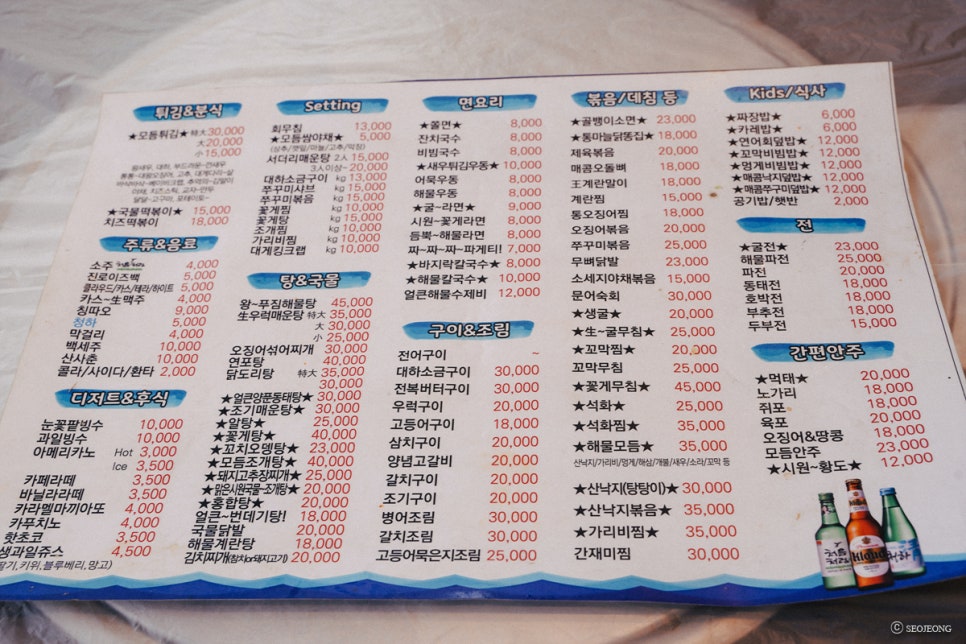 튀김&분식
★모듬튀김★ 특大 30,000
大 20,000
小 15,000
★국물떡볶이★ 15,000
치즈떡볶이 18,000
주류&음료
소주 4,000
진로이즈백 5,000
클라우드/카스/테라/하이트 5,000
카스~生맥주 4,000
칭따오 9,000
청하 5,000
막걸리 4,000
백세주 10,000
산사춘 10,000
콜라/사이다/환타 2,000
디저트&후식
눈꽃팥빙수 10,000
과일빙수 10,000
아메리카노 Hot 3,000
Ice 3,500
카페라떼 3,500
바닐라라떼 3,500
카라멜마끼아또 4,000
카푸치노 4,000
핫초코 3,500
생과일쥬스 4,500
딸기, 키위, 블루베리, 망고)
Setting
회무침 13,000
★모듬쌈야채★ 5,000
(상추/깻잎/마늘/고추/막장)
서더리매운탕 2인 15,000
3인이상~ 20,000
대하소금구이 kg 13,000
쭈꾸미샤브 kg 15,000
쭈꾸미볶음 kg 15,000
꽃게찜 kg 10,000
꽃게탕 kg 15,000
조개찜 kg 10,000
가리비찜 kg 10,000
대게킹크랩 kg 10,000
탕&국물
왕~푸짐해물탕 45,000
生우럭매운탕 특大 35,000
大 30,000
小 25,000
오징어섞어찌개 30,000
연포탕 40,000
닭도리탕 특大 35,000
30,000
★얼큰양푼동태탕★ 30,000
★조기매운탕★ 30,000
★알탕★ 25,000
★꽃게탕★ 40,000
★꼬치오뎅탕★ 23,000
★모듬조개탕★ 40,000
★돼지고추장찌개★ 25,000
★맑은시원국물~조개탕★ 20,000
★홍합탕★ 20,000
얼큰~번데기탕! 18,000
국물닭발 20,000
해물계란탕 18,000
김치찌개(참치or돼지고기) 20,000
면요리
★쫄면★ 8,000
잔치국수 8,000
비빔국수 8,000
★새우튀김우동★ 10,000
어묵우동 8,000
해물우동 8,000
★굴~라면★ 9,000
시원~꽃게라면 8,000
듬뿍~해물라면 8,000
짜~짜~짜파게티! 7,000
★바지락칼국수★ 8,000
★해물칼국수★ 10,000
얼큰해물수제비 12,000
구이&조림
전어구이 ~
대하소금구이 30,000
전복버터구이 30,000
우럭구이 20,000
고등어구이 18,000
삼치구이 20,000
양념고갈비 20,000
갈치구이 20,000
조기구이 20,000
병어조림 30,000
갈치조림 30,000
고등어묵은지조림 25,000
볶음/데침 등
★골뱅이소면★ 23,000
★통마늘닭똥집★ 18,000
제육볶음 20,000
매콤오돌뼈 18,000
왕계란말이 18,000
계란찜 15,000
통오징어찜 18,000
오징어볶음 20,000
쭈꾸미볶음 25,000
무뼈닭발 23,000
소세지야채볶음 15,000
문어숙회 30,000
★생굴★ 20,000
★生~굴무침★ 25,000
★꼬막찜★ 20,000
꼬막무침 25,000
★꽃게무침★ 45,000
★석화★ 25,000
★석화찜★ 35,000
★해물모듬★ 35,000
산낙지/가리비/멍게/해삼/개불/새우/소라/꼬막 등
★산낙지(탕탕이)★ 30,000
★산낙지볶음★ 35,000
★가리비찜★ 35,000
간재미찜 30,000
Kids/식사
★짜장밥★ 6,000
★카레밥★ 6,000
★연어회덮밥★ 12,000
★꼬막비빔밥★ 12,000
★멍게비빔밥★ 12,000
★매콤낙지덮밥★ 12,000
★매콤쭈구미덮밥★ 12,000
공기밥/햇반 2,000
전
★굴전★ 23,000
해물파전 25,000
파전 20,000
동태전 18,000
호박전 18,000
부추전 18,000
두부전 15,000
간편안주
★먹태★ 20,000
노가리 18,000
쥐포 18,000
육포 20,000
오징어&땅콩 18,000
모듬안주 23,000
★시원~황도★ 12,000
ⓒ SEOJEONG